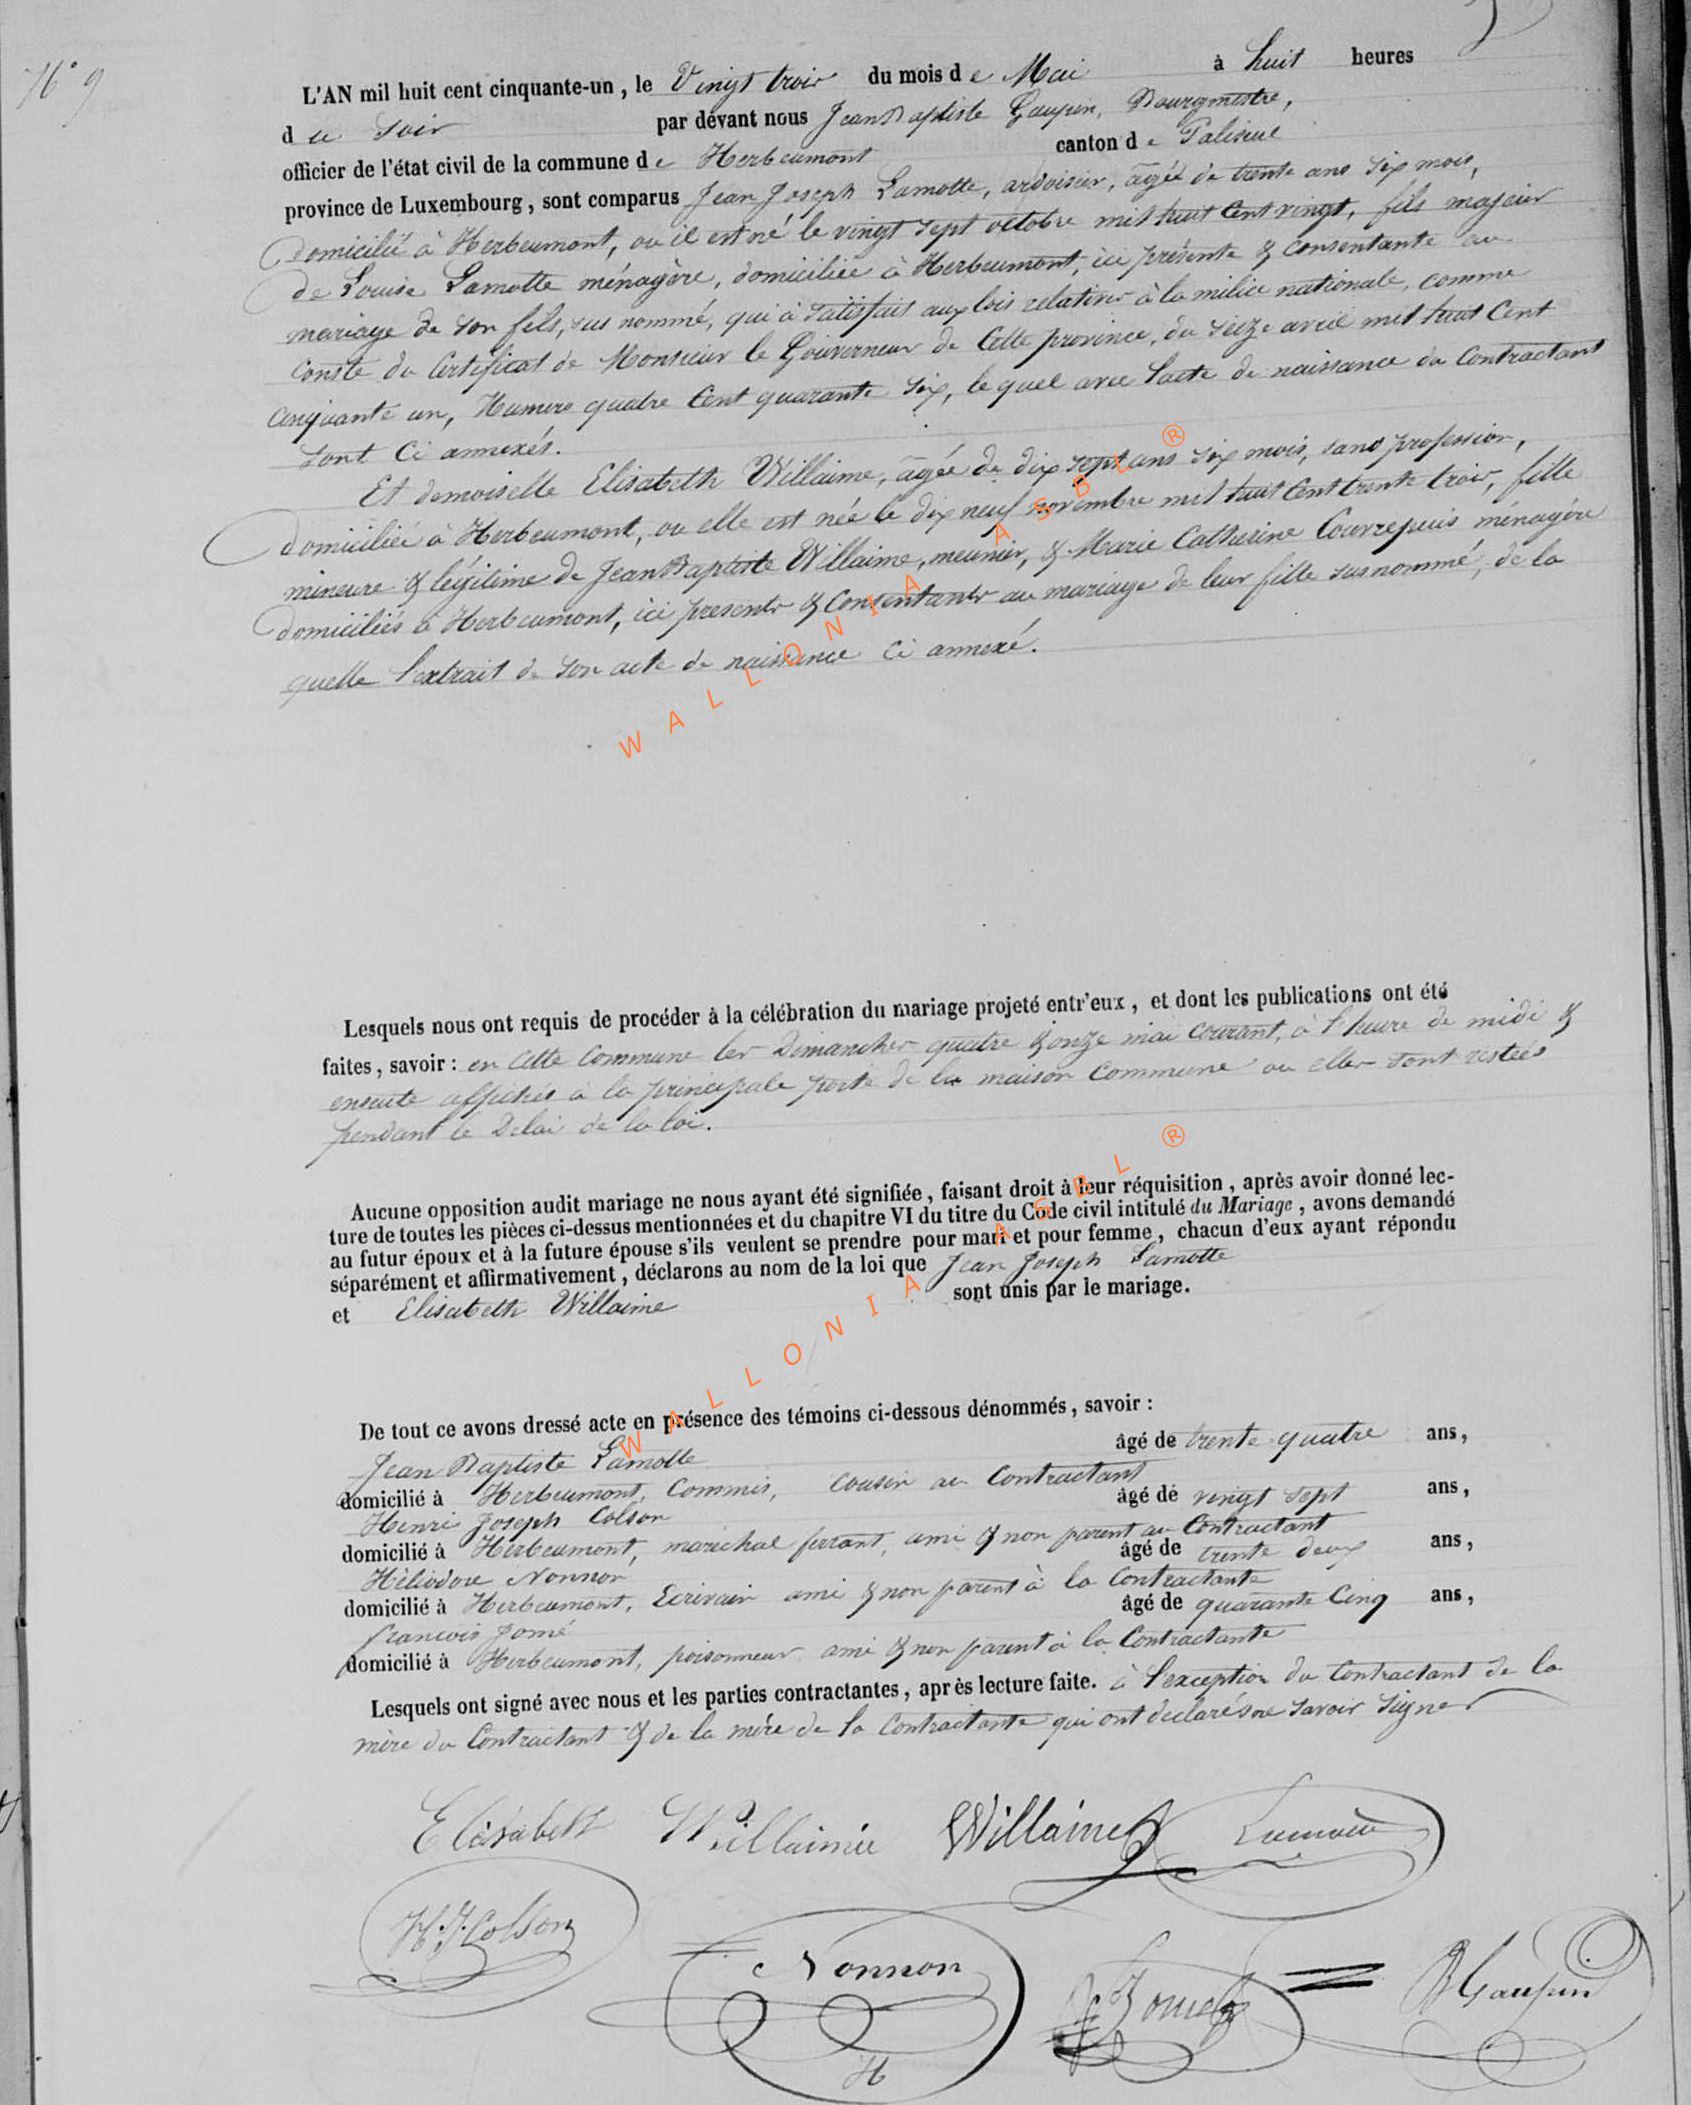 N° 9
L'AN mil huit cent cinquante-un, le Vingt trois du mois de Mai à huit heures
du soir par dévant nous Jean Baptiste Gaupin, Bourgmestre,
officier de l'état civil de la commune de Herbeumont canton de Paliseul
province de Luxembourg, sont comparus Jean Joseph Lamotte, ardoisier, âgée de trente ans six mois,
domicilié à Herbeumont, ou il est né le vingt sept octobre mil huit Cent vingt, fils majeur
de Louise Lamotte ménagère, domiciliée à Herbeumont, ici présente & consentante au
mariage de son fils, sus nommé, qui à satisfait aux lois relatives à la milice nationale, comme
conste du Certificat de Monsieur le Gouverneur de Cette province, du seize avril mil huit Cent
cinquante un, Numero quatre Cent quarante six, le quel avec l'acte de naissance du Contractant
sont Ci annexés.
Et demoiselle Elisabeth Willaime, âgée de dix sept ans six mois, sans profession,
domiciliée à Herbeumont, ou elle est née le dix neuf novembre mil huit Cent trente trois, fille
mineure & légitime de Jean Baptiste Willaime, meunier, & Marie Catherine Couvrepuis ménagère
domiciliés à Herbeumont, ici presents & Consentants au mariage de leur fille susnommé, de la
quelle l'extrait de son acte de naissance Ci annexé.
WALLONIA ASBL ®
Lesquels nous ont requis de procéder à la célébration du mariage projeté entr'eux, et dont les publications ont été
faites, savoir : en Cette Commune les Dimanches quatre & onze mai courant, à l'heure de midi &
ensuite affichés à la principale porte de la maison Commune ou elles sont restées
pendant le Délai de la loi.
Aucune opposition audit mariage ne nous ayant été signifiée, faisant droit à leur réquisition, après avoir donné lec-
ture de toutes les pièces ci-dessus mentionnées et du chapitre VI du titre du Code civil intitulé du Mariage, avons demandé
au futur époux et à la future épouse s'ils veulent se prendre pour mari et pour femme, chacun d'eux ayant répondu
séparément et affirmativement, déclarons au nom de la loi que Jean Joseph Lamotte
et Elisabeth Willaime sont unis par le mariage.
WALLONIA ASBL ®
De tout ce avons dressé acte en présence des témoins ci-dessous dénommés, savoir :
Jean Baptiste Lamotte âgé de trente quatre ans,
domicilié à Herbeumont, Commis, cousin au Contractant
Henri Joseph Colson âgé de vingt sept ans,
domicilié à Herbeumont, maréchal ferrant, ami & non parent au Contractant
Héliodore Nonnon âgé de trente deux ans,
domicilié à Herbeumont, Ecrivain ami & non parent à la Contractante
François Jomé âgé de quarante Cinq ans,
domicilié à Herbeumont, poisonneur ami & non parent à la Contractante
Lesquels ont signé avec nous et les parties contractantes, après lecture faite. à l'exception du Contractant de la
mère du Contractant & de la mère de la Contractante qui ont déclarés ne savoir signer
Elisabeth Willaimie Willaime Lamotte
H. J. Colson
Nonnon
H
Jomé
B Gaupin